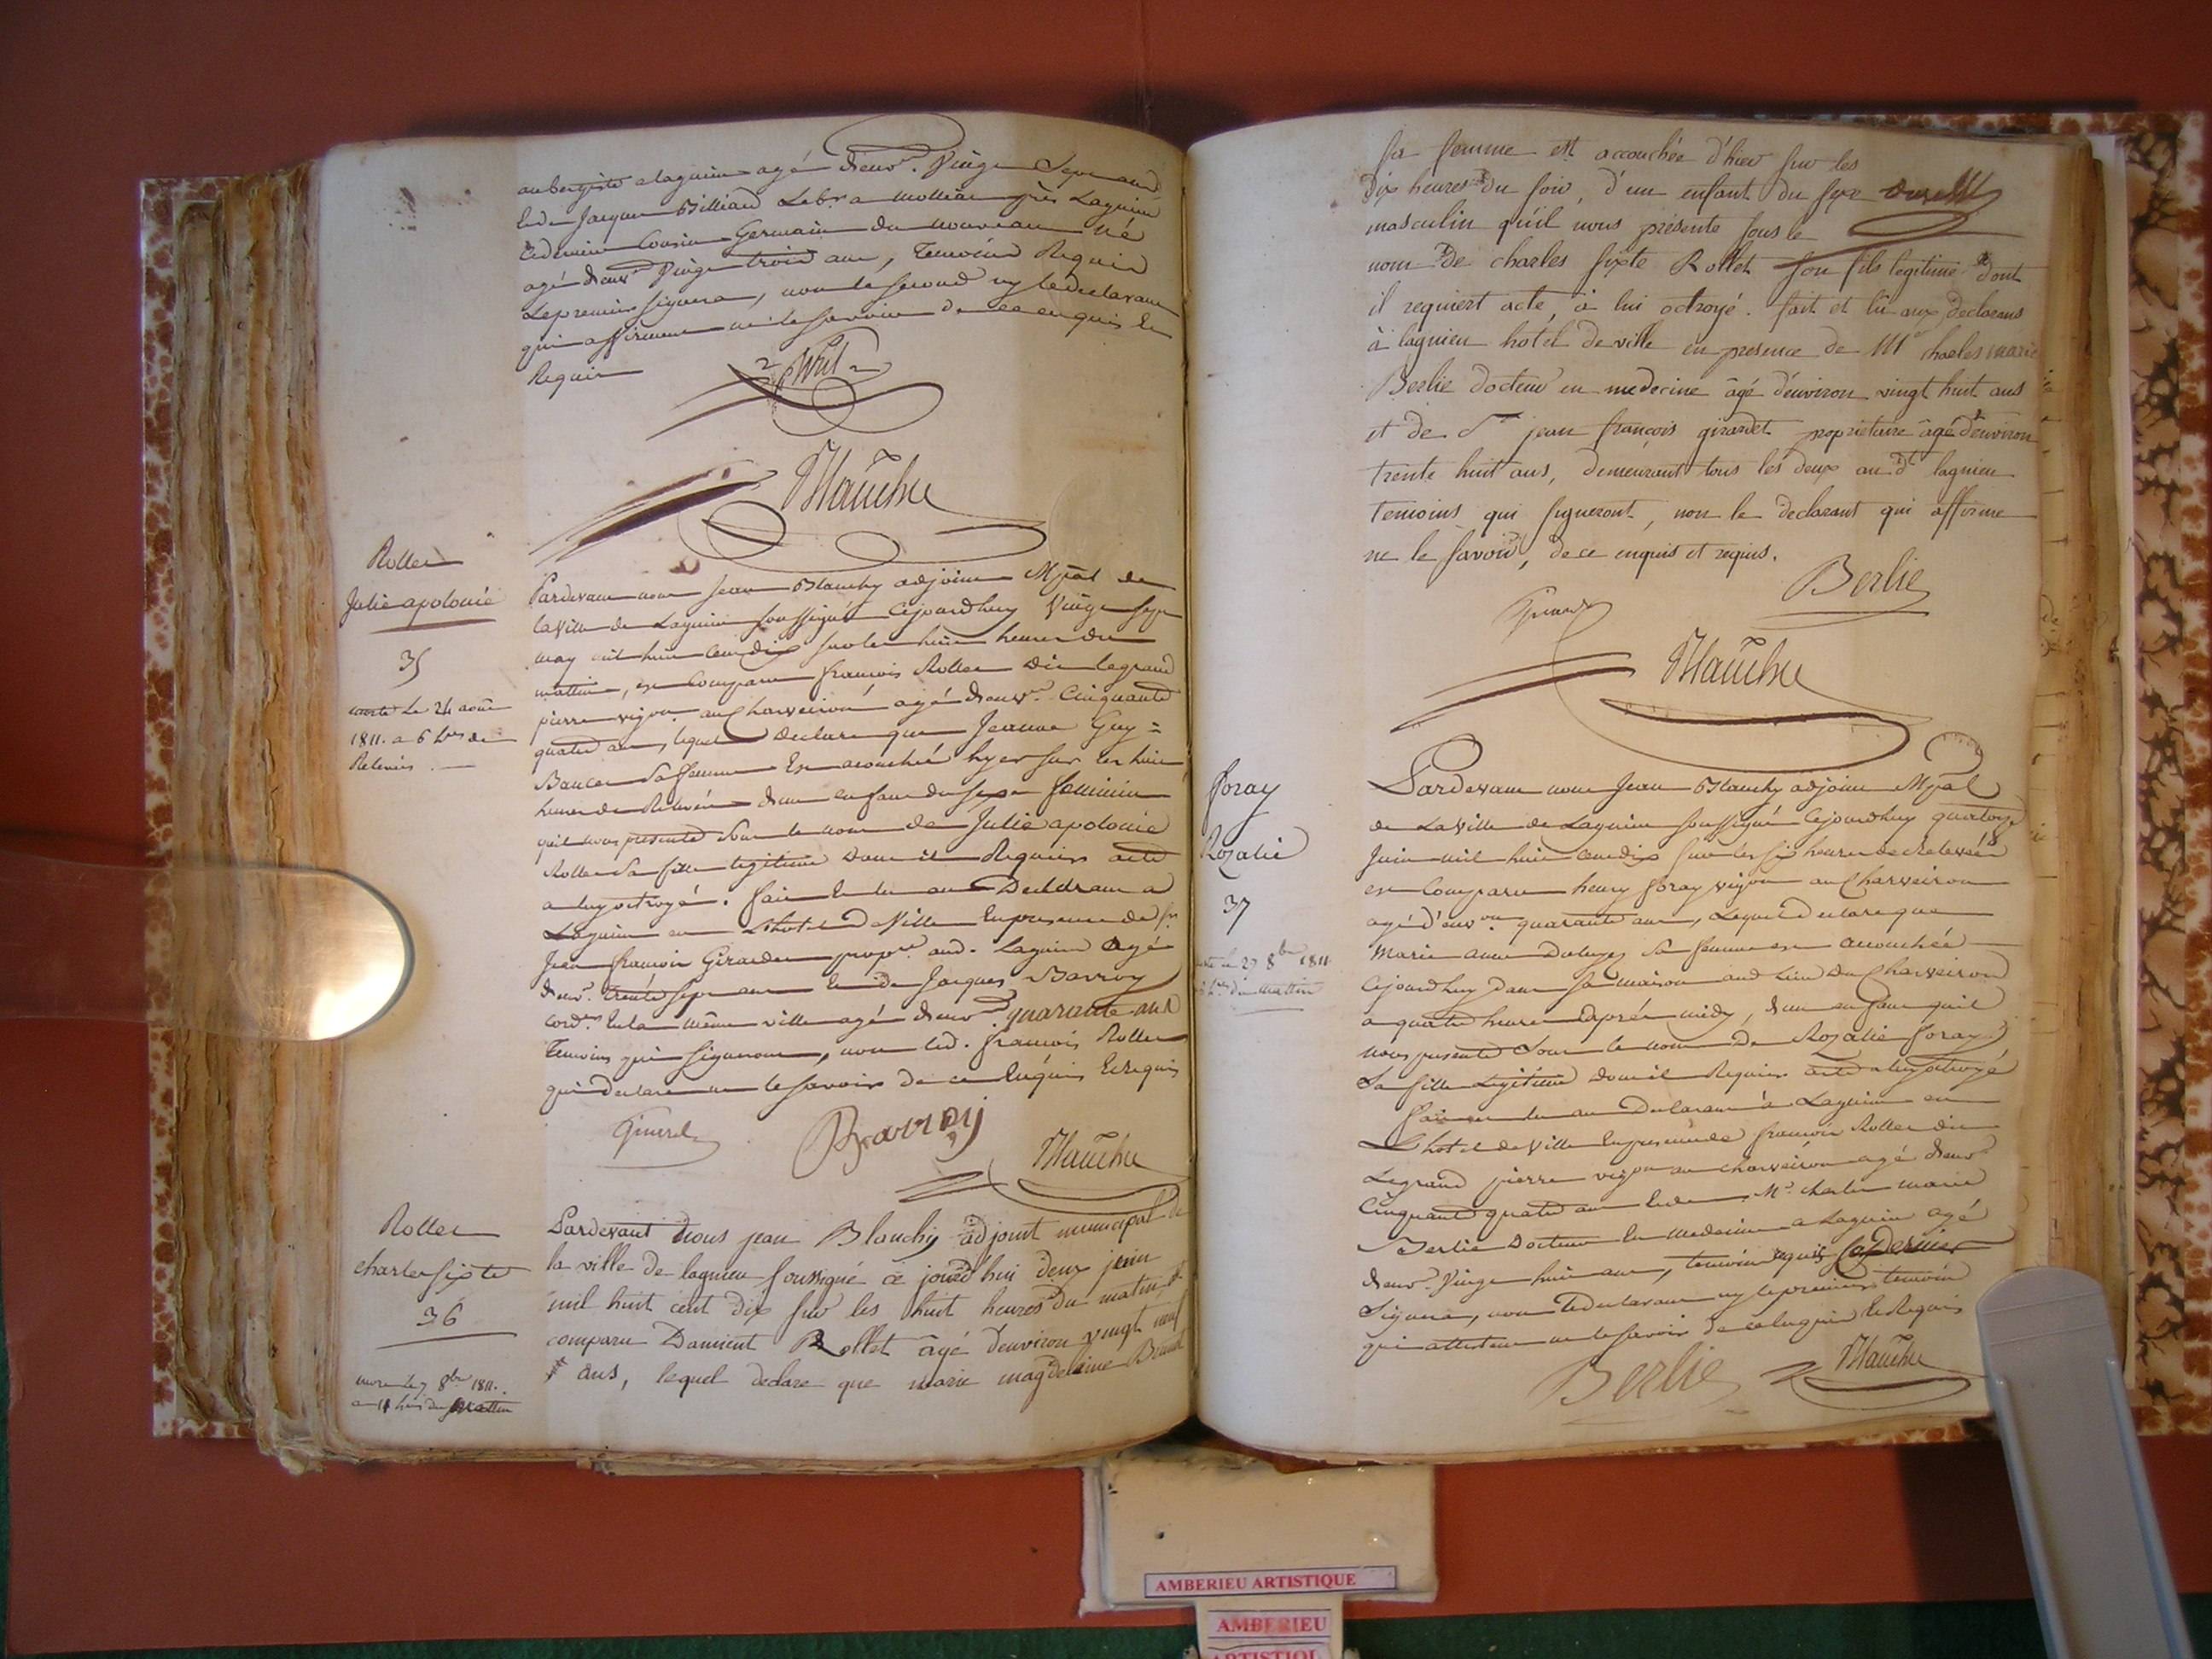 aubergiste a lagnieu agé d'env.on Vingt Sept ans
Et de Jacques Billiard Lab.r a mollieas près Lagnieu
Led. dernier Cousin Germain du nouveau né
agé d'env.on Vingt trois ans, Temoins Requis
Le premier signera, non le second ny le declarant
qui affirment ne le savoir de ce enquis Et
Requis
Blanchy
Rollet
Julie apolonie
35
morte Le 24 aout
1811. a 6 h.res de
Relevées
Pardevant nous Jean Blanchy adjoint Mpal de
la Ville de Lagnieu soussigné Cejourdhuy Vingt sept
may mil huit Cent dix sur les huit heures du
mattin, est Comparu françois Rollet Dit legrand
pierre vigon au Charveiron agé d'env.on Cinquante
quatre ans, lequel Declare que Jeanne Guy=
sa femme Est acouchée hyer sur les huit
heures de Relevée d'un enfant du sexe feminin
qu'il nous presente sous le nom de Julie apolonie
Rollet sa fille legitime dont il Requiert acte
a luy octroyé. fait Et lu au Declarant a
Lagnieu en L'hotel de Ville En presence de sr.
Jean françois Girardet prop.re aud. Lagnieu agé
d'env. trente sept ans Et de Jacques Barroy
cord.er En la même ville agé d'env.on quarante ans
Temoins qui signeront, non led. françois Rollet
qui declare ne le savoir de ce Enquis Et requis
Girard
Barroy
Blanchy
Rollet
charles sixte
36
mort le 7 8bre 1811.
a 11 h.res du mattin
Pardevant nous jean Blanchy adjoint municipal de
la ville de lagnieu soussigné ce jourd'hui deux juin
mil huit cent dix sur les huit heures du matin, est
comparu Damient Rollet âgé d'environ vingt neuf
ans, lequel declare que marie magdelaine
sa femme est accouchée d'hier sur les
dix heures du soir, d'un enfant du sexe
masculin qu'il nous présente sous le
nom de charles sixte Rollet son fils legitime dont
il requiert acte, à lui octroyé. fait et lû aux declarans
à lagnieu hotel de ville en presence de Mr charles marie
Berlie docteur en medecine âgé d'environ vingt huit ans
et de Sr jean françois girardet proprietaire âgé d'environ
trente huit ans, demeurant tous les deux au dt lagnieu
temoins qui signeront, non le declarant qui affirme
ne le savoir, de ce enquis et requis.
Berlie
Girard
Blanchy
foray
Rozalie
37
le 29 8bre 1811
h.res du mattin
Pardevant nous Jean Blanchy adjoint Mpal
de La Ville de Lagnieu soussigné Cejourdhuy quatorze
Juin mil huit Cent dix sur les six heures de Relevées
est Comparu henry foray vigon au Charveiron
agé d'env.on quarante ans, Lequel declare que
Marie anne sa femme est acouchée
Cejourdhuy dans sa maison aud. Lieu du Charveiron
a quatre heures d'après midy, d'un enfant qu'il
nous presente sous le nom De Rozalie foray
Sa fille Legitime dont il Requiert acte a luy octroyé
fait et lu au Declarant à Lagnieu en
L'hotel de Ville En presence de françois Rollet dit
Legrand pierre vigon au charveiron agé d'env.on
Cinquante quatre ans Et de Mr. charles marie
Berlie Docteur En medecine a Lagnieu agé
d'env.on Vingt huit ans, temoins requis Ce Dernier
Signera, non le declarant ny le premier temoin
qui attestent ne le savoir de ce Enquis Et Requis
Berlie
Blanchy
AMBERIEU ARTISTIQUE
AMBERIEU